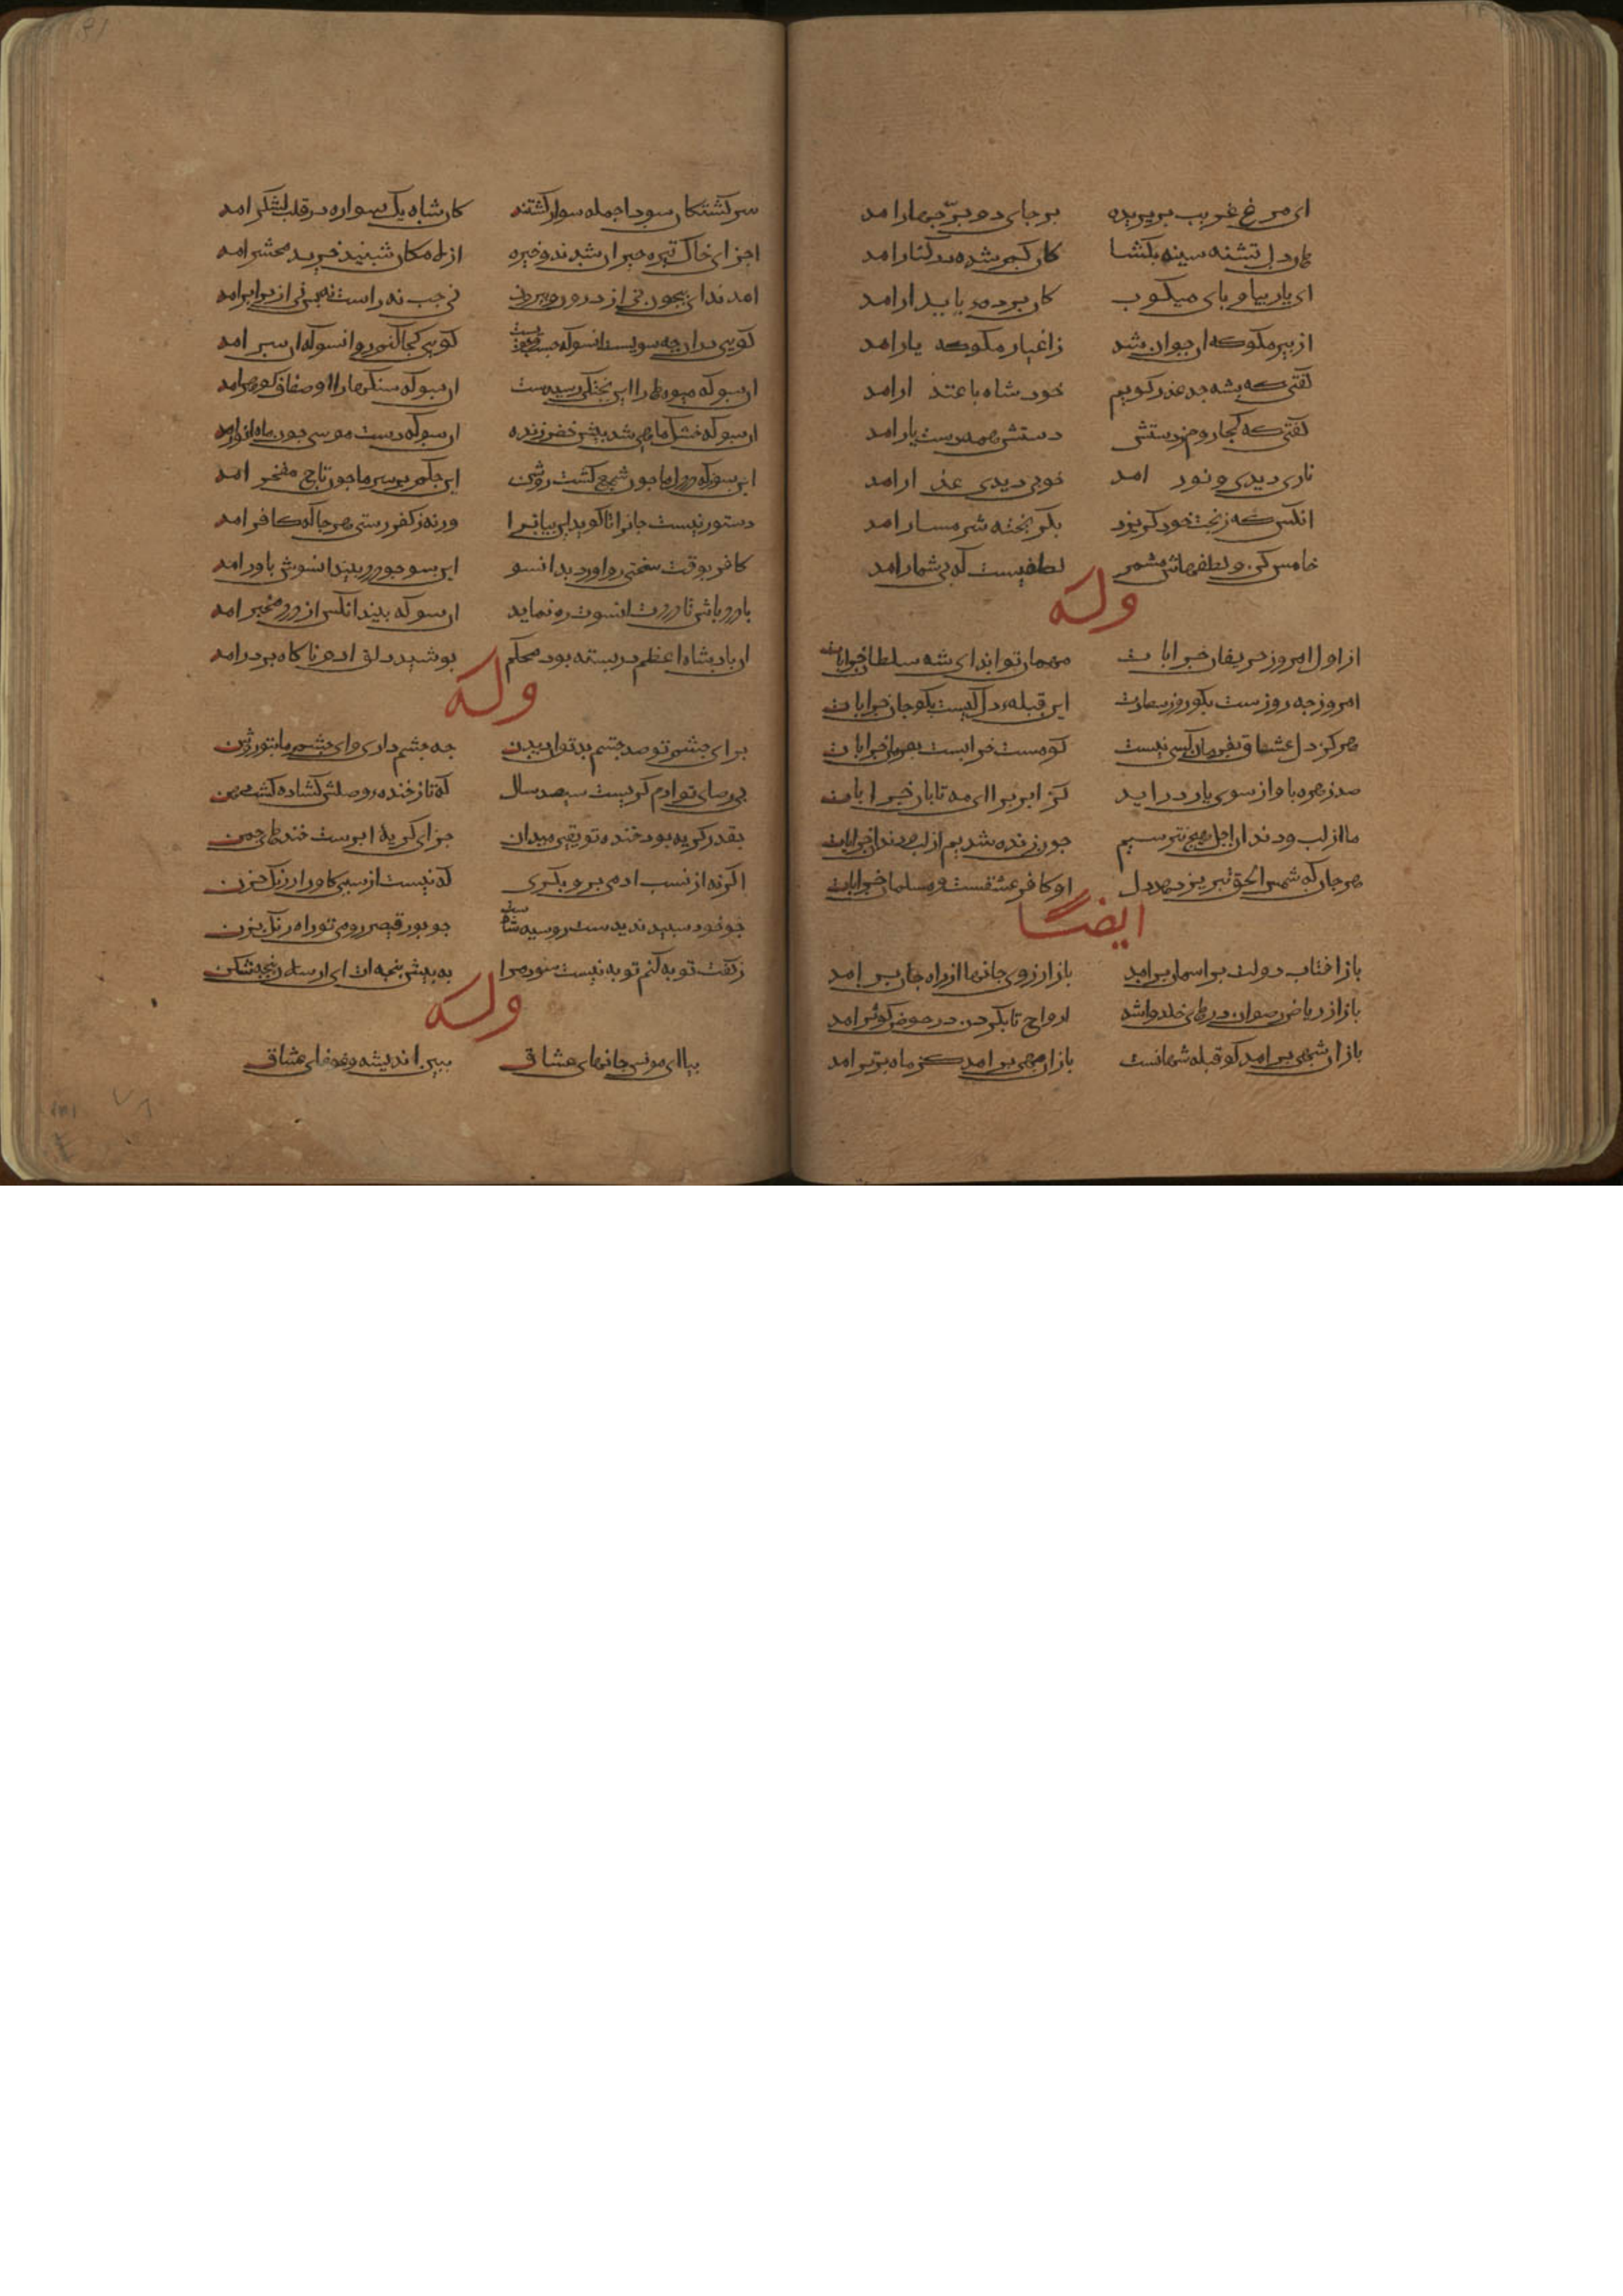 ای مرغ غریب بر بریده بر جای دو بر جهار امد
هان دل تشنه سینه بکشا کان کم شده در کنار امد
ای یار بیا و بای میکوب کان بر دم یا بیدار امد
از بیر مکو که ان جوان شد ز اغیار مکو که یار امد
کفتی که بشه جه عذر کویم خود شاه باعتذار امد
کفتی که کجا رهم ز دستش دستش همه دست یار امد
ناری دیدی و نور امد خونی دیدی عذار امد
انکس که ز بخت خود کریزد بکریخته شرمسار امد
خامش کن و لطفهاش مشمر لطفیست که بی شمار امد
وله
از اول امروز حریفان خرابات مهمان تو اند ای شه سلطان خرابات
امروز جه روزست بکو روز سعادت این قبله دل کیست بکو جان خرابات
هرکز دل عشاق بفرمان کسی نیست کو مست خرابست بفرمان خرابات
صد زهره باواز سوی یار در اید کز ابر برا ای مه تابان خرابات
ما از لب و دندان اجل هیج نترسیم جون زنده شدیم از لب و دندان خرابات
هر جان که شمس الحق تبریز دهد دل او کافر عشقست و مسلمان خرابات
ایضا
باز افتاب دولت بر اسمان برامد باز ارزوی جانها از راه جان بر امد
باز از ریاض رضوان درهای خلد وا شد ارواح تا بکردن در حوض کوثر امد
باز ان شهی برامد کو قبله شهانست باز ان مهی برامد کز ماه برتر امد
سرکشتکان سودا جمله سوار کشتند کان شاه یک سواره در قلب لشکر امد
اجزای خاک تیره حیران شدند و خیره از لامکان شنیده خیزید محشر امد
امد ندای بیجون نی از درون و بیرون نی جب نه راست نه بس نی از برابر امد
کویی بدان جه سویست انسو که جست و جوست کویی کجا کنم رو انسو که ان سر امد
ان سو که میوها را این بختکی رسیدست ان سو که سنکها را اوصاف کوهر امد
ان سو که خشک ماهی شد بیش خضر زنده ان سو که دست موسی جون ماه انور امد
این سوز که در دل ما جون شمع کشت روشن این حکم بر سر ما جون تاج مفخر امد
دستور نیست جانرا تا کوید این بیانرا ورنه ز کفر رستی هر جا که کافر امد
کافر بوقت سختی رو اورد بدانسو این سو جو درد بیند انسوش باور امد
با درد باش تا درد انسوت ره نماید ان سو که بیند انکس از درد مخبر امد
ان بادشاه اعظم در بسته بود محکم بوشید دلق ادم ناکاه بر در امد
وله
برای جشم تو صد جشم بد توان دیدن جه جشم داری وای جشم ما بتو روشن
بی رضای تو ادم کریست سیصد سال که تا ز خنده وصلش کشاده کشت دهن
بقدر کریه بود خنده تو یقین میدان جزای کریه ابرست خندهای جمن
اکر نه از نسب ادمی برو بکری که نیست از سیهی کاو را ز زنک حزن
جو خود سبید ندیدست روسیه شادست جو بور قیصر رومی تو راه زنک بزن
ز کفت توبه کنم توبه نیست سود مرا به بیش بنجه ات ای ارسلان بنجه شکن
وله
بیا ای مونس جانهای عشاق ببین اندیشه و غوغای عشاق